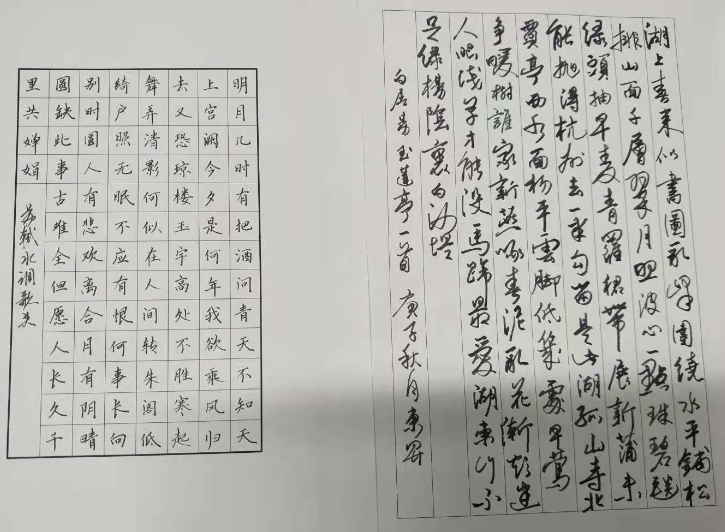 湖上春来似畫圖乱峰圍繞水平鋪松
排山面千層翠月照波心一點珠碧毯
綫頭抽早麦青羅裙帶展新蒲未
能抛得杭州去一半勾留是此湖孤山寺北
賈亭西水面初平雲脚低幾處早鶯
争暖樹誰家新燕啄春泥乱花漸欲迷
人眼浅草才能没馬蹄最愛湖東行不
足绿楊陰裏白沙堤
白居易玉蓮亭一首 庚子秋月東昇
明月几时有把酒问青天不知天
上宫阙今夕是何年我欲乘风归
去又恐琼楼玉宇高处不胜寒起
舞弄清影何似在人间转朱阁低
绮户照无眠不应有恨何事长向
别时圆人有悲欢离合月有阴晴
圆缺此事古难全但愿人长久千
里共婵娟 苏轼水调歌头